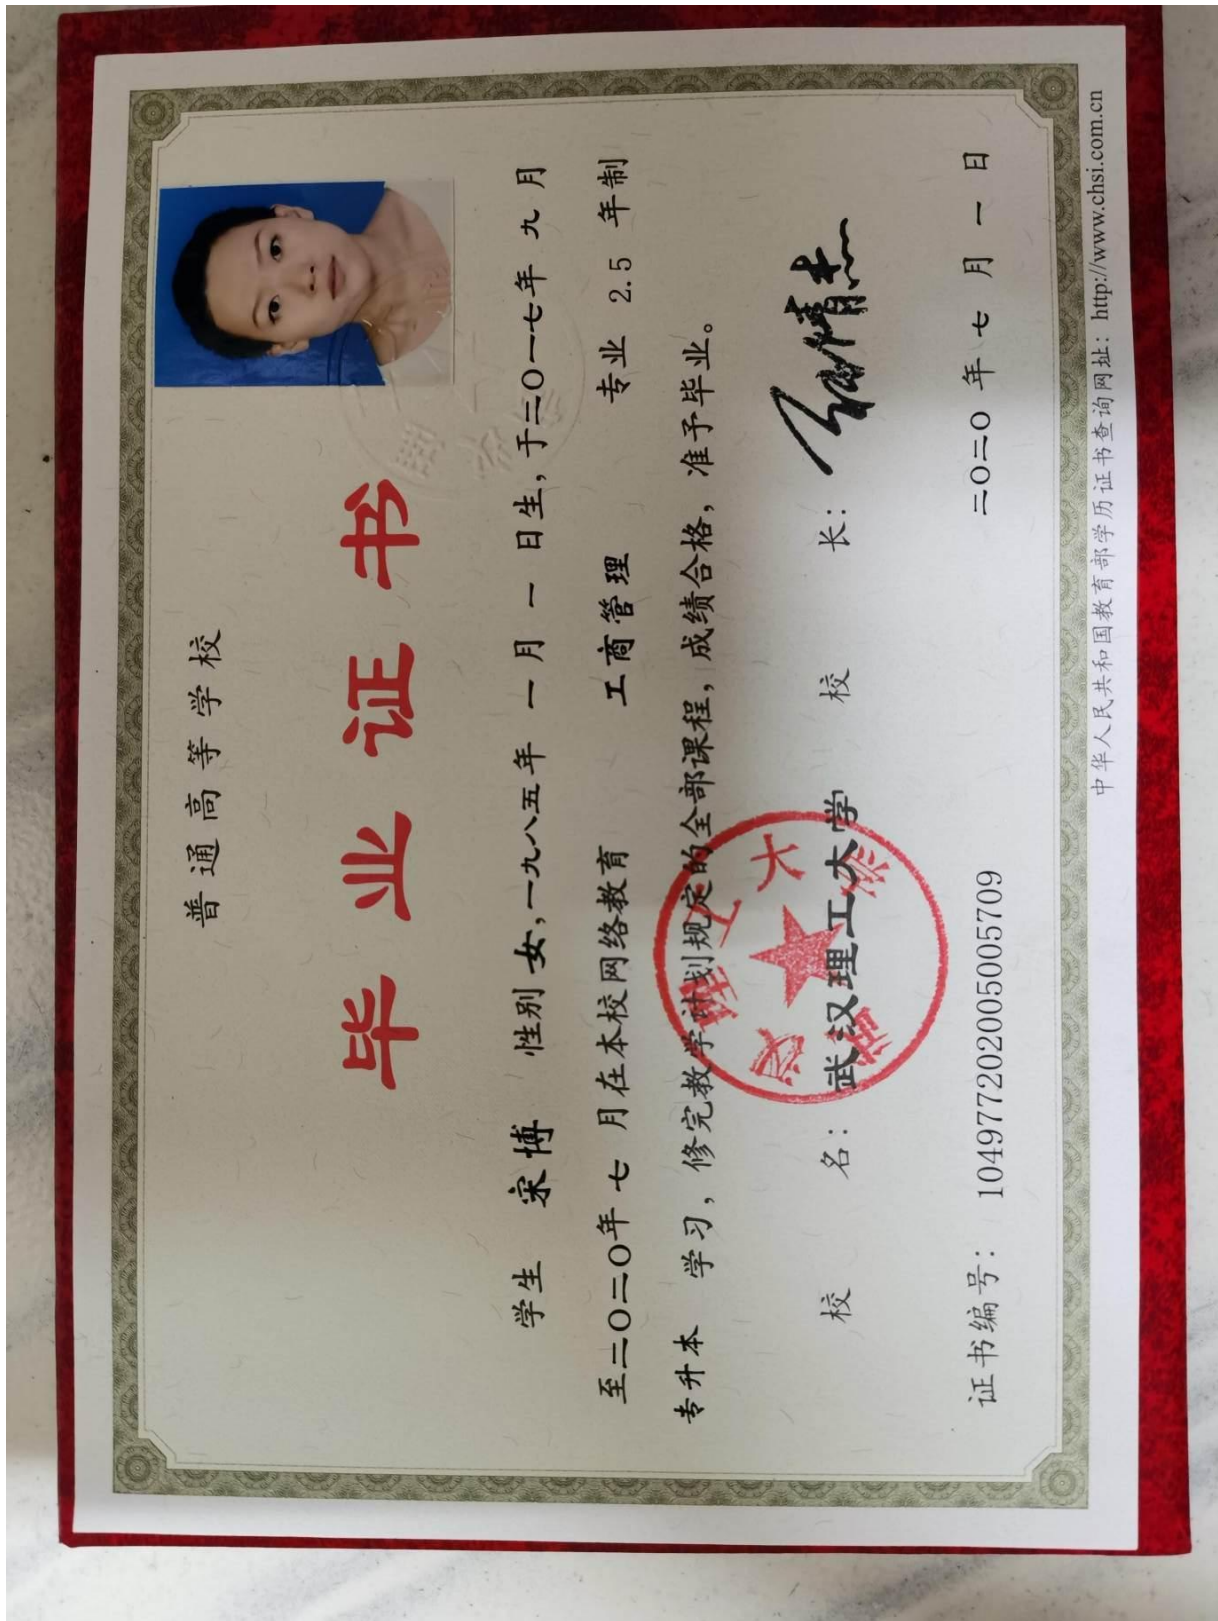 普通高等学校
毕业证书
学生 宋博 性别 女,一九八五年 一 月 一 日生,于二〇一七年 九 月
至二〇二〇年 七 月在本校网络教育 工商管理 专业 2.5 年制
专升本 学习,修完教学计划规定的全部课程,成绩合格,准予毕业。
校 名: 武汉理工大学 校 长:
证书编号: 104977202005005709 二〇二〇 年 七 月 一 日
中华人民共和国教育部学历证书查询网址: http://www.chsi.com.cn
武汉理工大学